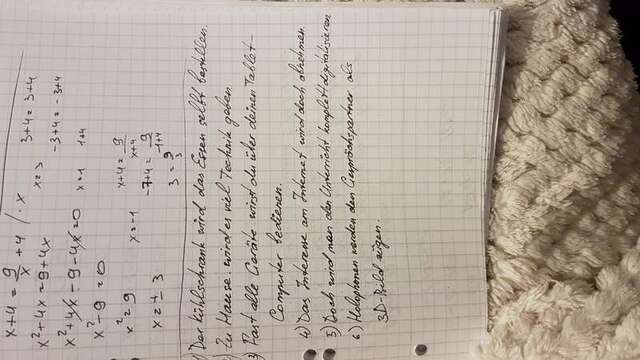 x+4 = 9/x + 4 / · x
x² + 4x = 9 + 4x
x² + 4x - 9 - 4x = 0
x² - 9 = 0
x² = 9
x = ± 3
x = 3
3+4 = 3+4
-3+4 = -3+4
x=1 1+4
x = -1
x+4 = 9/x+4
-7+4 = 9/-1+4
3 = 9/3
1) Der Kühlschrank wird das Essen selbt bestellen.
2) Zu Hause wird es viel Technik geben
3) Fast alle Geräte wirst du über deinen Tablet-
Computer bedienen.
4) Das Interesse am Internet wird doch abnehmen.
5) Doch wird man den Unterricht komplett digitalisieren
6) Holophonen werden den Gesprächspartner als
3D-Bild zeigen.